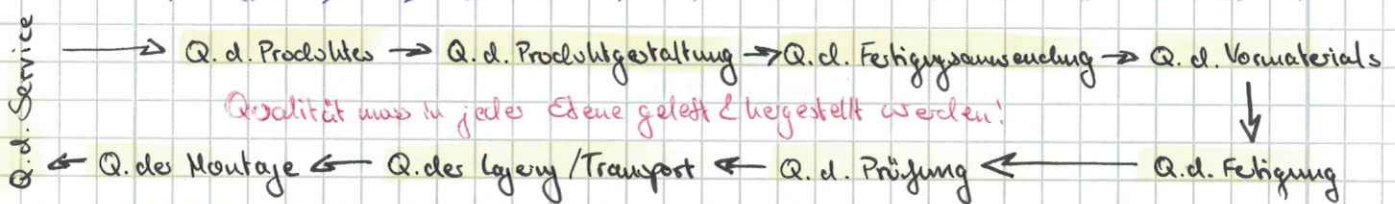 Q. d. Service
→ Q. d. Produktes → Q. d. Produktgestaltung → Q. d. Fertigungsanwendung → Q. d. Vormaterials
Qualität muss in jeder Ebene gelebt & hergestellt werden!
← Q. der Montage ← Q. der Lagerung / Transport ← Q. d. Prüfung ← Q. d. Fertigung